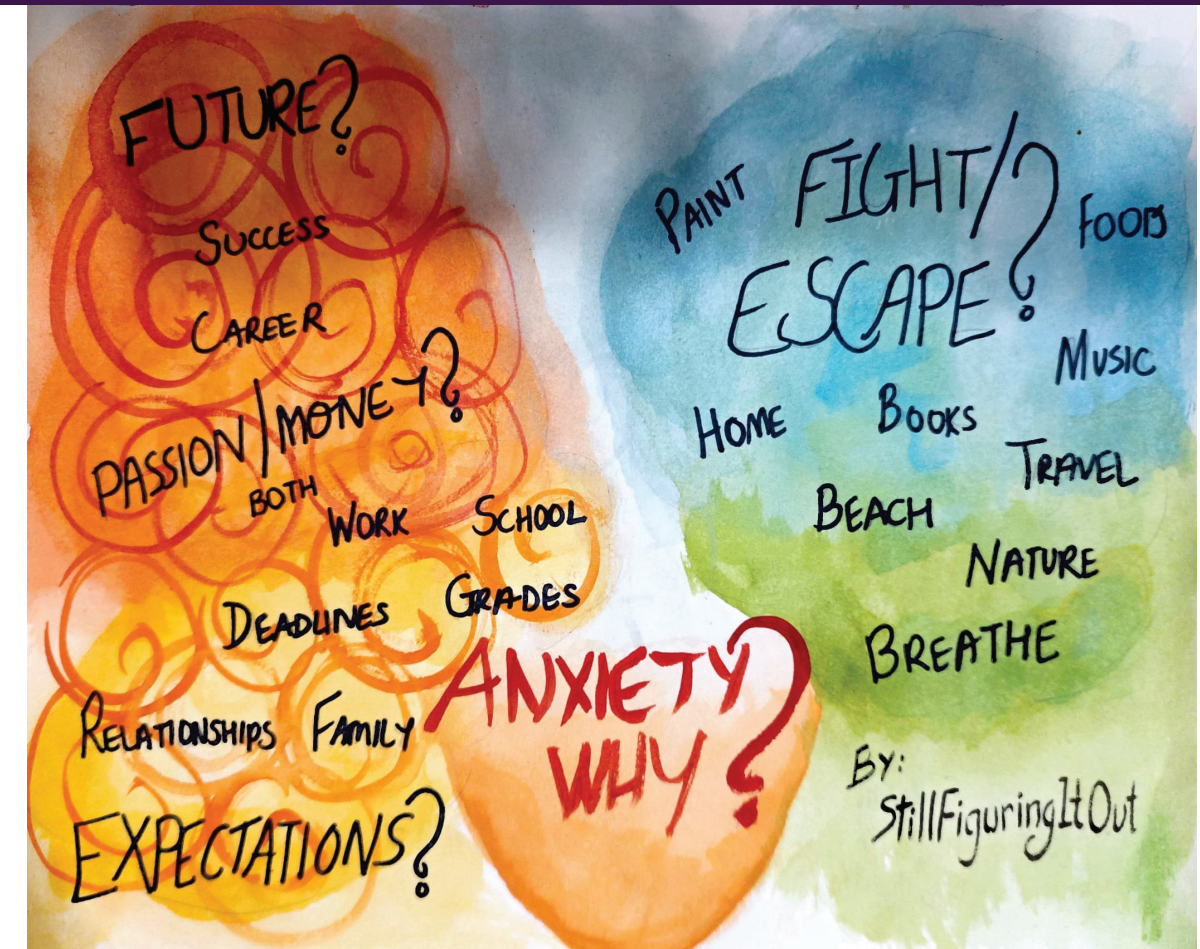 FUTURE?
SUCCESS
CAREER
PASSION/MONEY?
BOTH
WORK
SCHOOL
DEADLINES
GRADES
RELATIONSHIPS
FAMILY
EXPECTATIONS?
ANXIETY
WHY?
PAINT
FIGHT/
ESCAPE?
FOODS
MUSIC
HOME
BOOKS
TRAVEL
BEACH
NATURE
BREATHE
BY:
StillFiguringItOut